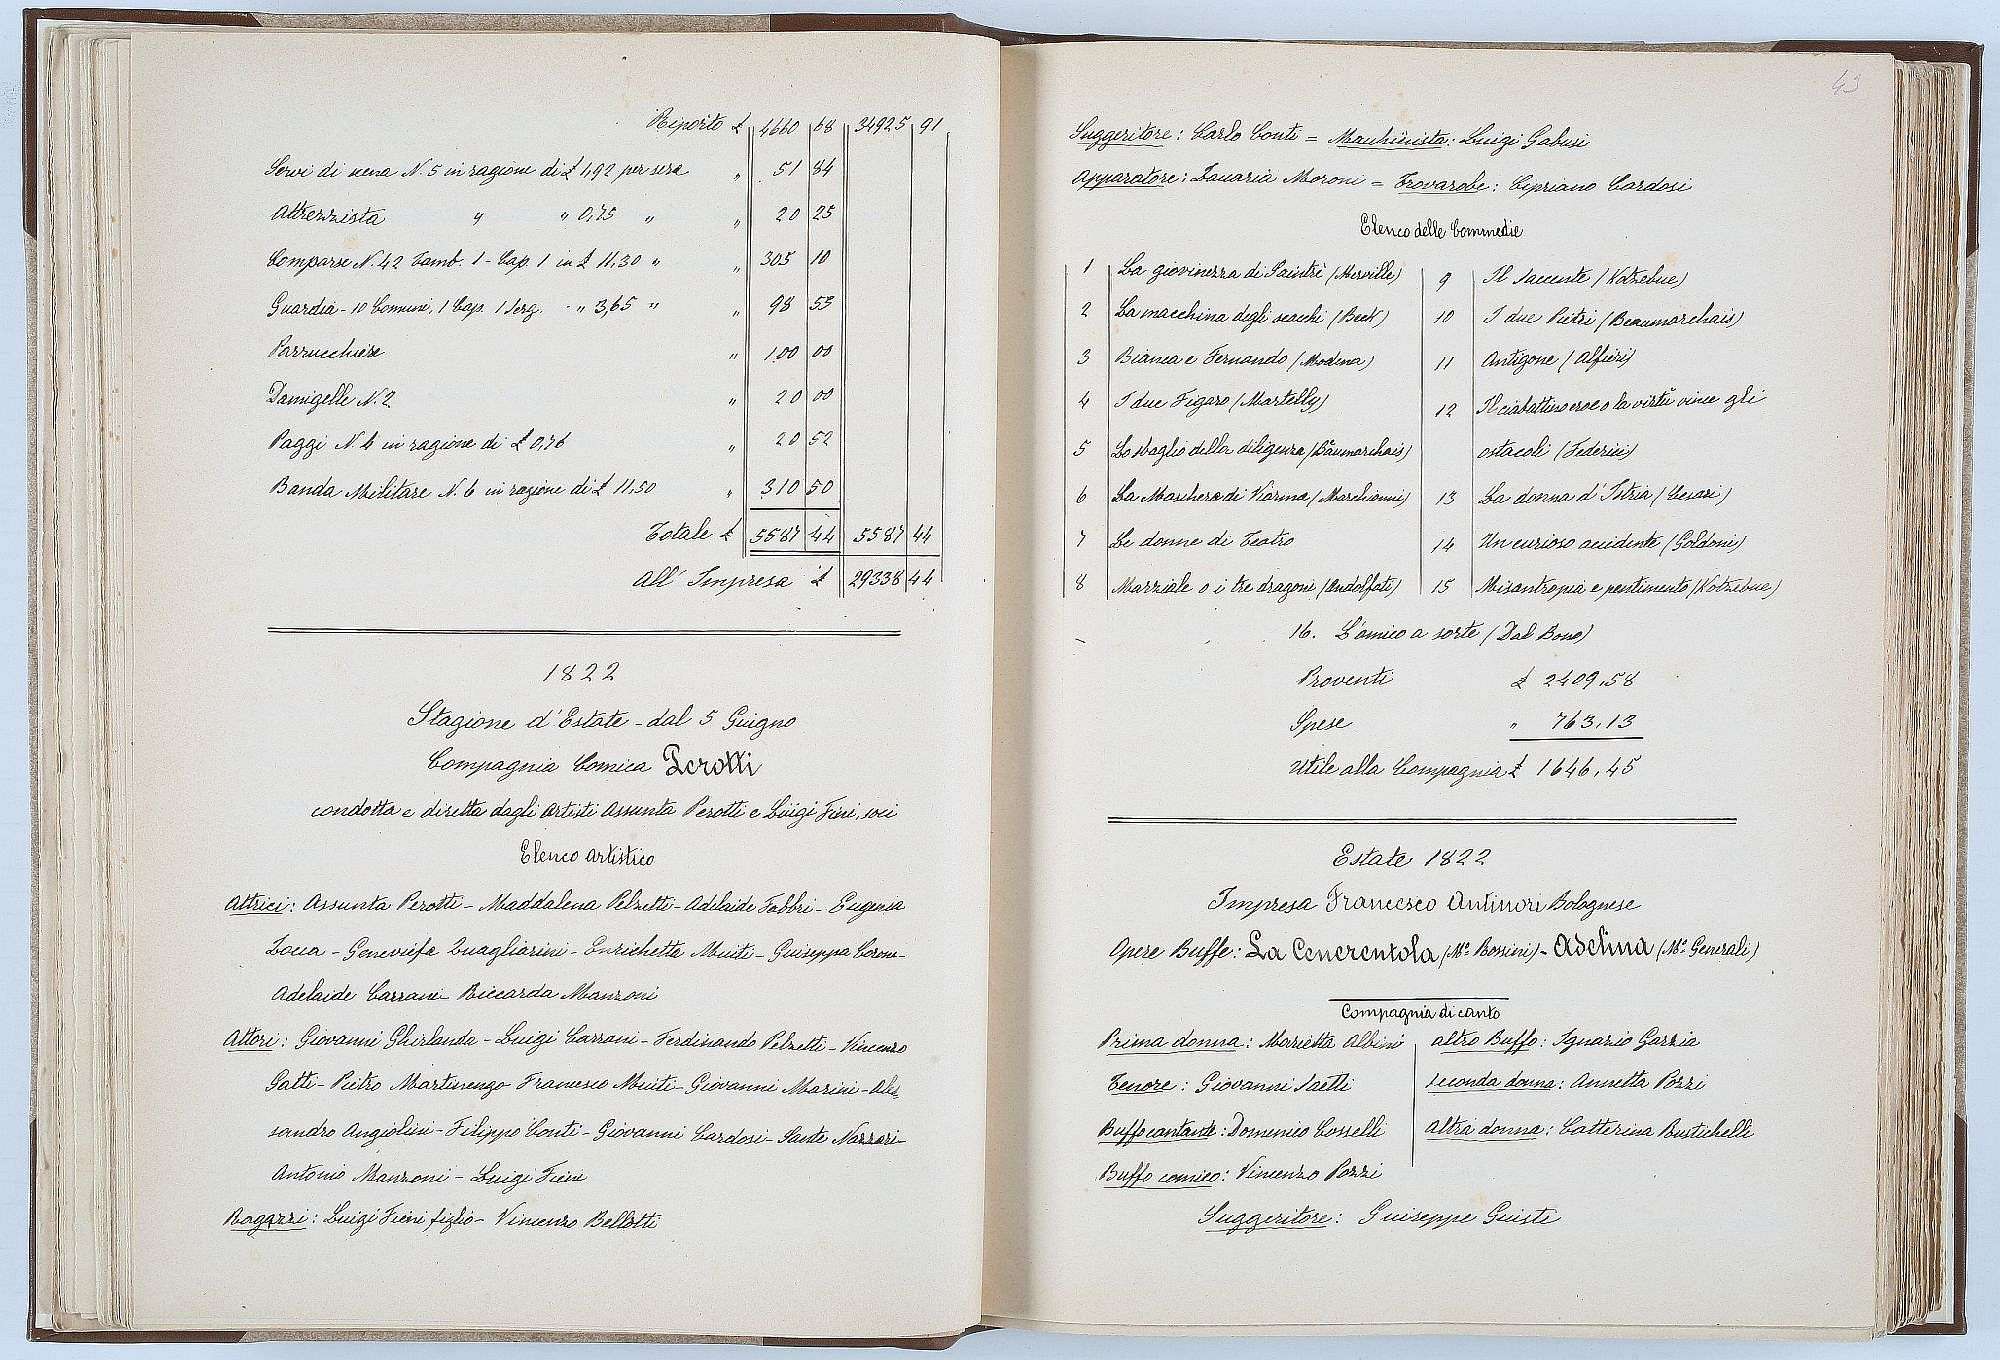 Riporto £ 4660 68 34925 91
Servi di scena N. 5 in ragione di £ 1,92 per sera " 51 84
Attrezzista " " 0,75 " " 20 25
Comparse N. 42 Tamb. 1 - Cap. 1 in £ 11,30 " " 305 10
Guardia - 10 Comuni, 1 Cap. 1 Serg. - " 3,65 " " 98 53
Parrucchiere " 100 00
Damigelle N. 2 " 20 00
Paggi N. 6 in ragione di £ 0,76 " 20 52
Banda Militare N. 6 in ragione di £ 11,50 " 310 50
Totale £ 5587 44 5587 44
All' Impresa £ 29338 44
1822
Stagione d'Estate - dal 5 Giugno
Compagnia Comica Perotti
condotta e diretta dagli Artisti Assunta Perotti e Luigi Fini, soci
Elenco Artistico
Attrici: Assunta Perotti - Maddalena Pelzetti - Adelaide Fabbri - Eugenia
Zocca - Genevieffa Quagliarini - Enrichetta Miuti - Guiseppa Coroni -
Adelaide Carrani - Riccarda Manzoni
Attori: Giovanni Ghirlanda - Luigi Carrani - Ferdinando Pelzetti - Vincenzo
Gatti - Pietro Martinengo Francesco Miuti - Giovanni Marini - Ales
sandro Angiolini - Filippo Conti - Giovanni Cardosi - Sante Nazzari -
Antonio Manzoni - Luigi Fini
Ragazzi: Luigi Fini figlio - Vincenzo Bellotti
43
Suggeritore: Carlo Conti = Macchinista: Luigi Gabusi
Apparatore: Zauaria Moroni = Trovarobe: Cipriano Cardosi
Elenco delle Commedie
1 La giovinezza di Saintrè (Merville)
2 La macchina degli scacchi (Beck)
3 Bianca e Fernando (Modena)
4 I due Figaro (Martelly)
5 Lo sbaglio della diligenza (Baumarchais)
6 La Maschera di Parma (Marchionni)
7 Le donne di Teatro
8 Marziale o i tre dragoni (Andolfati)
9 Il Saccente (Kotzebue)
10 I due Pietri (Beaumarchais)
11 Antigone (Alfieri)
12 Il ciabattino eroe o la virtù vince gli
ostacoli (Federici)
13 La donna d'Istria (Cesari)
14 Un curioso accidente (Goldoni)
15 Misantropia e pentimento (Kotzebue)
16. L'amico a sorte (Dal Bono)
Proventi £ 2409,58
Spese " 763,13
Utile alla Compagnia £ 1646,45
Estate 1822
Impresa Francesco Antinori Bolognese
Opere Buffe: La Cenerentola (Mo. Rossini) - Adelina (Mo. Generali)
Compagnia di canto
Prima donna: Marietta Albini
Tenore: Giovanni Saetti
Buffo cantante: Domenico Cosselli
Buffo comico: Vincenzo Pozzi
altro Buffo: Ignazio Garzia
Seconda donna: Annetta Pozzi
Altra donna: Catterina Bustichelli
Suggeritore: Guiseppe Guisti